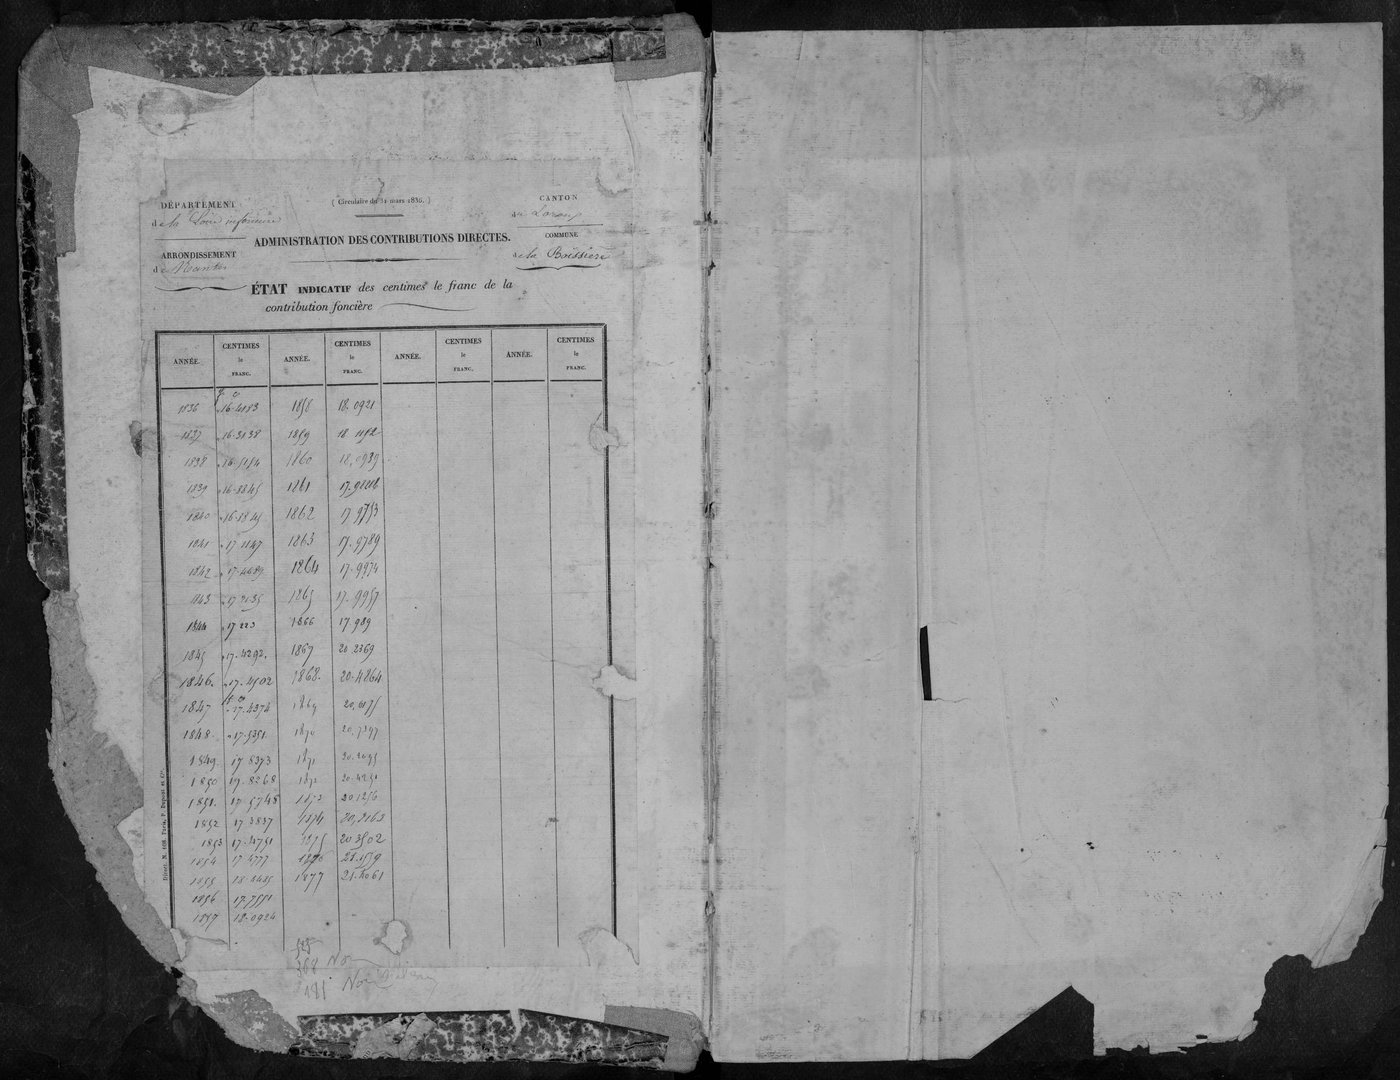 DÉPARTEMENT
de la Loire inférieure
ARRONDISSEMENT
de Nantes
( Circulaire du 31 mars 1836. )
ADMINISTRATION DES CONTRIBUTIONS DIRECTES.
CANTON
du Loroux
COMMUNE
de la Boissière
ÉTAT INDICATIF des centimes le franc de la
contribution foncière
ANNÉE. CENTIMES le FRANC. ANNÉE. CENTIMES le FRANC. ANNÉE. CENTIMES le FRANC. ANNÉE. CENTIMES le FRANC.
1836 16.4183 1858 18.0921
1837 16.3138 1859
1838 1860 18,0939
1839 16.8845 1861
1840 16.1845 1862 17 9753
1841 17 1147 1863 17.9789
1842 17.4689 1864 17.9974
1843 1865 17.9957
1844 17 223 1866 17.989
1845 17.4292. 1867 20 2369
1846. 17.4502 1868. 20.4864
1847 17.4374 1869 20,6175
1848. 17.5351 1870
1849. 17 8373 1871 20.2095
1850 17.8268 1872 20.4251
1851. 17.5748 1873 20 1256
1852 17 3837 1874 20,2163
1853 17.4751 1875 20 3502
1854 17.4777 1876 21.1579
1855 1877 21.4061
1856 17.7551
1857 18.0924
Déuct. N. 108. Paris, P. Dupont et Cie.